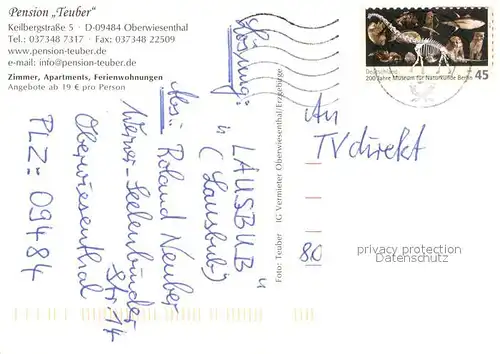 Pension „Teuber“
Keilbergstraße 5 · D-09484 Oberwiesenthal
Tel.: 037348 7317 · Fax: 037348 22509
www.pension-teuber.de
e-mail: info@pension-teuber.de
Zimmer, Apartments, Ferienwohnungen
Angebote ab 19 € pro Person
Lösung:
„LAUSBUB“
(Lausbub)
Abs.: Roland Neuber
Werner-Seelenbinder
Str. 14
Oberwiesenthal
PLZ: 09484
Foto: Teuber IG Vermieter Oberwiesenthal/Erzgebirge
Deutschland
200 Jahre Museum für Naturkunde Berlin
45
An
TV direkt
80
privacy protection
Datenschutz